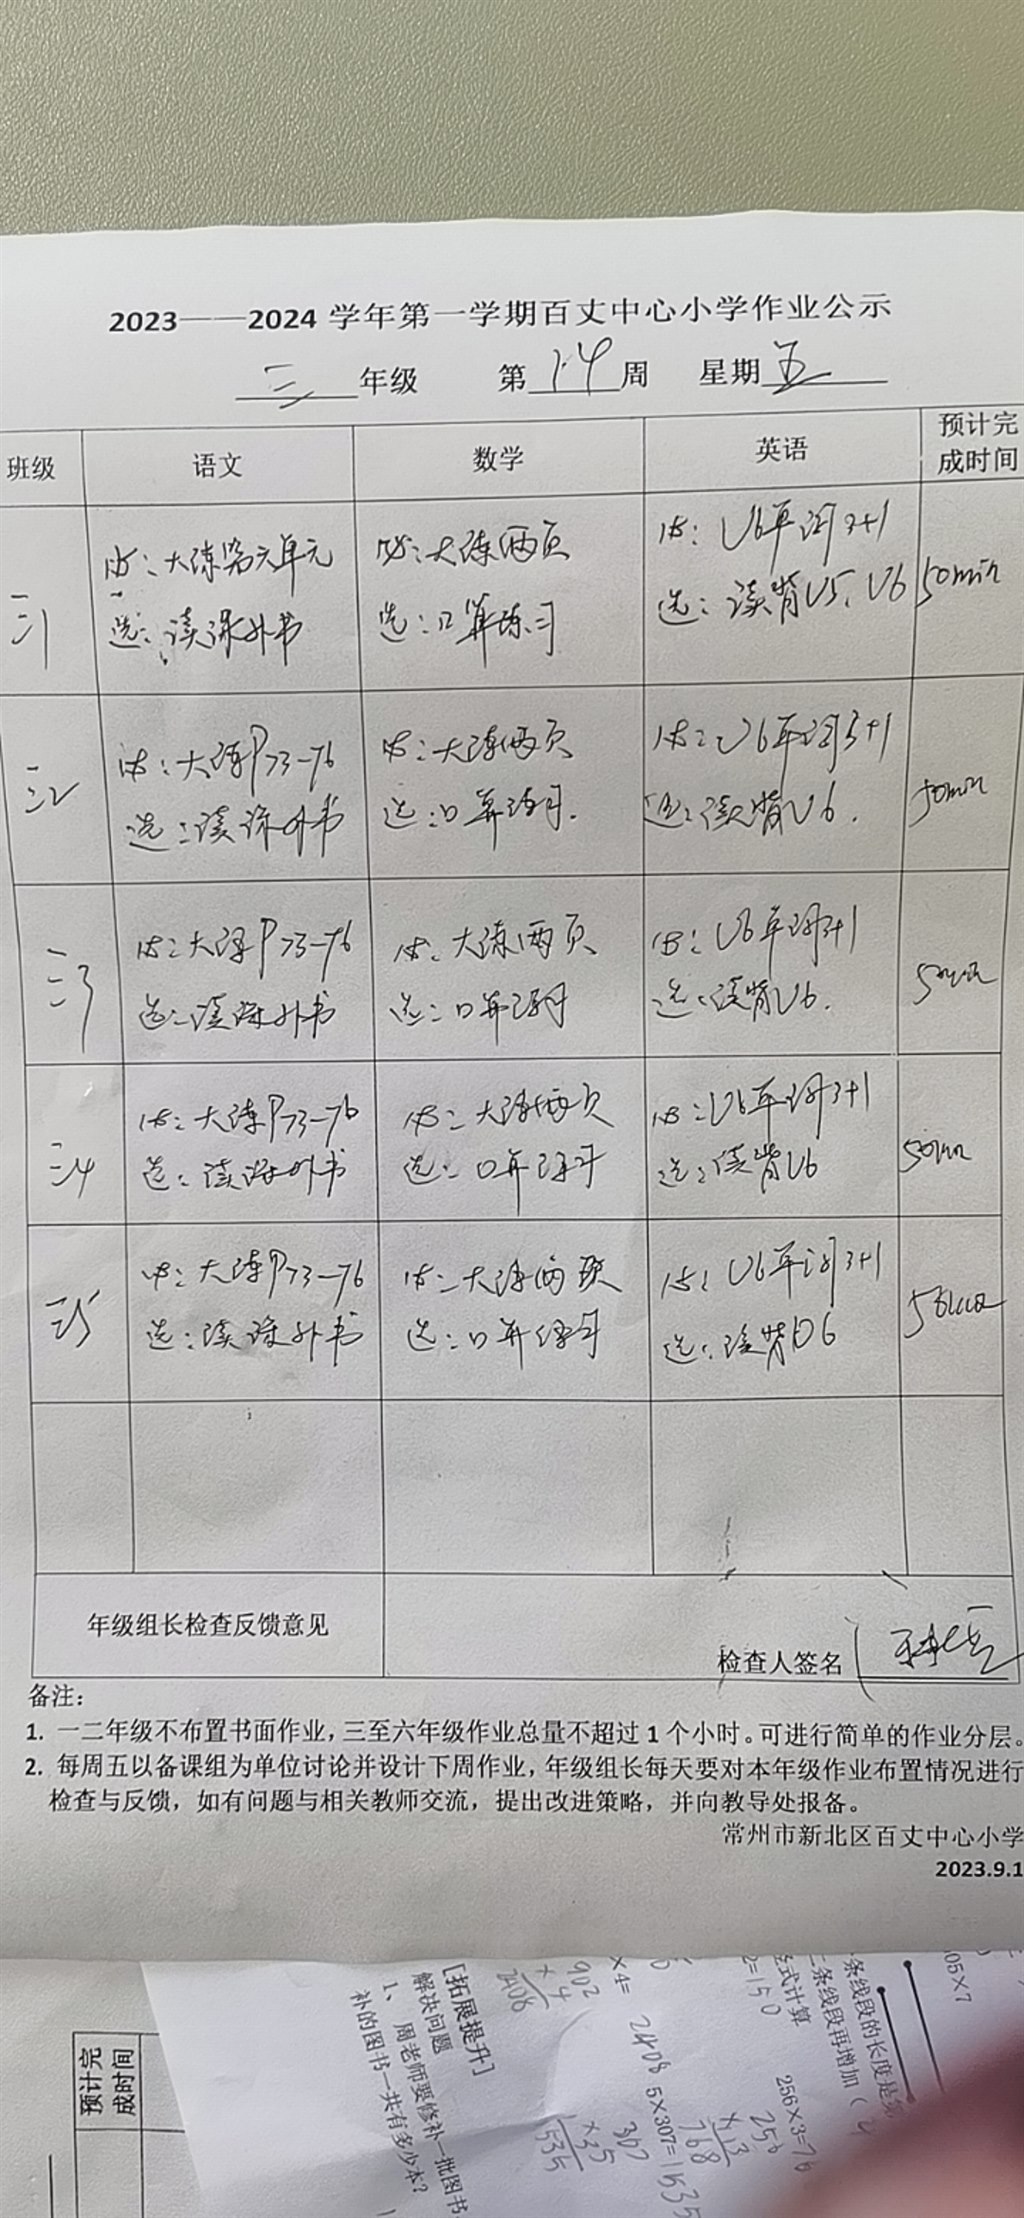 2023——2024 学年第一学期百丈中心小学作业公示
三 年级 第 14 周 星期 五
班级 语文 数学 英语 预计完成时间
三1
必：大练第六单元
选：读课外书
必：大练两页
选：口算练习
必：U6单词3+1
选：读背U5、U6
50min
三2
必：大练P73-76
选：读课外书
必：大练两页
选：口算练习.
必：U6单词3+1
选：读背U6.
50min
三3
必：大练P73-76
选：读课外书
必：大练两页
选：口算练习
必：U6单词3+1
选：读背U6.
50min
三4
必：大练P73-76
选：读课外书
必：大练两页
选：口算练习
必：U6单词3+1
选：读背U6
50min
三5
必：大练P73-76
选：读课外书
必：大练两页
选：口算练习
必：U6单词3+1
选：读背U6
50min
年级组长检查反馈意见
检查人签名
备注：
1. 一二年级不布置书面作业，三至六年级作业总量不超过 1 个小时。可进行简单的作业分层。
2. 每周五以备课组为单位讨论并设计下周作业，年级组长每天要对本年级作业布置情况进行
检查与反馈，如有问题与相关教师交流，提出改进策略，并向教导处报备。
常州市新北区百丈中心小学
2023.9.1
预计完
成时间
[拓展提升]
解决问题
1、周老师要修补一批图书
补的图书一共有多少本？
902
×4
×4= 2408
5×307=1535
307
×35
1535
256×3=76
256
×13
768
2=150
竖式计算
条线段的长度是
条线段再增加（
05×7